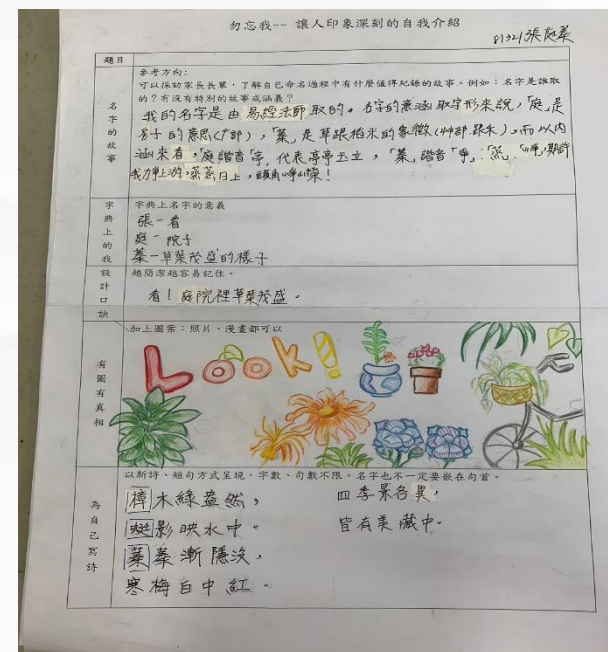 勿忘我-- 讓人印象深刻的自我介紹
81321張庭蓁
題目
名字的故事
參考方向:
可以採訪家長長輩,了解自己命名過程中有什麼值得紀錄的故事。例如:名字是誰取
的?有沒有特別的故事或涵義?
我的名字是由易經法師取的。名字的意涵取字形來說,「庭」是
房子的意思(广部),「蓁」是草跟稻米的象徵(艸部跟禾)。而以內
涵來看,「庭諧音「亭」代表亭亭玉立,「蓁」諧音「爭」、「蒸」、「崢」,期許
我力爭上游,蒸蒸日上,頭角崢嶸!
字典上的我
字典上名字的意義
張-看
庭-院子
蓁-草葉茂盛的樣子
設計口訣
越簡潔越容易記住。
看!庭院裡草葉茂盛。
有圖有真相
加上圖案:照片、漫畫都可以
Look!
為自己寫詩
以新詩、短句方式呈現。字數、句數不限。名字也不一定要嵌在句首。
樟木綠盎然,
蜓影映水中。
蓁蓁漸隱沒,
寒梅白中紅。
四季景各異,
皆有美藏中。